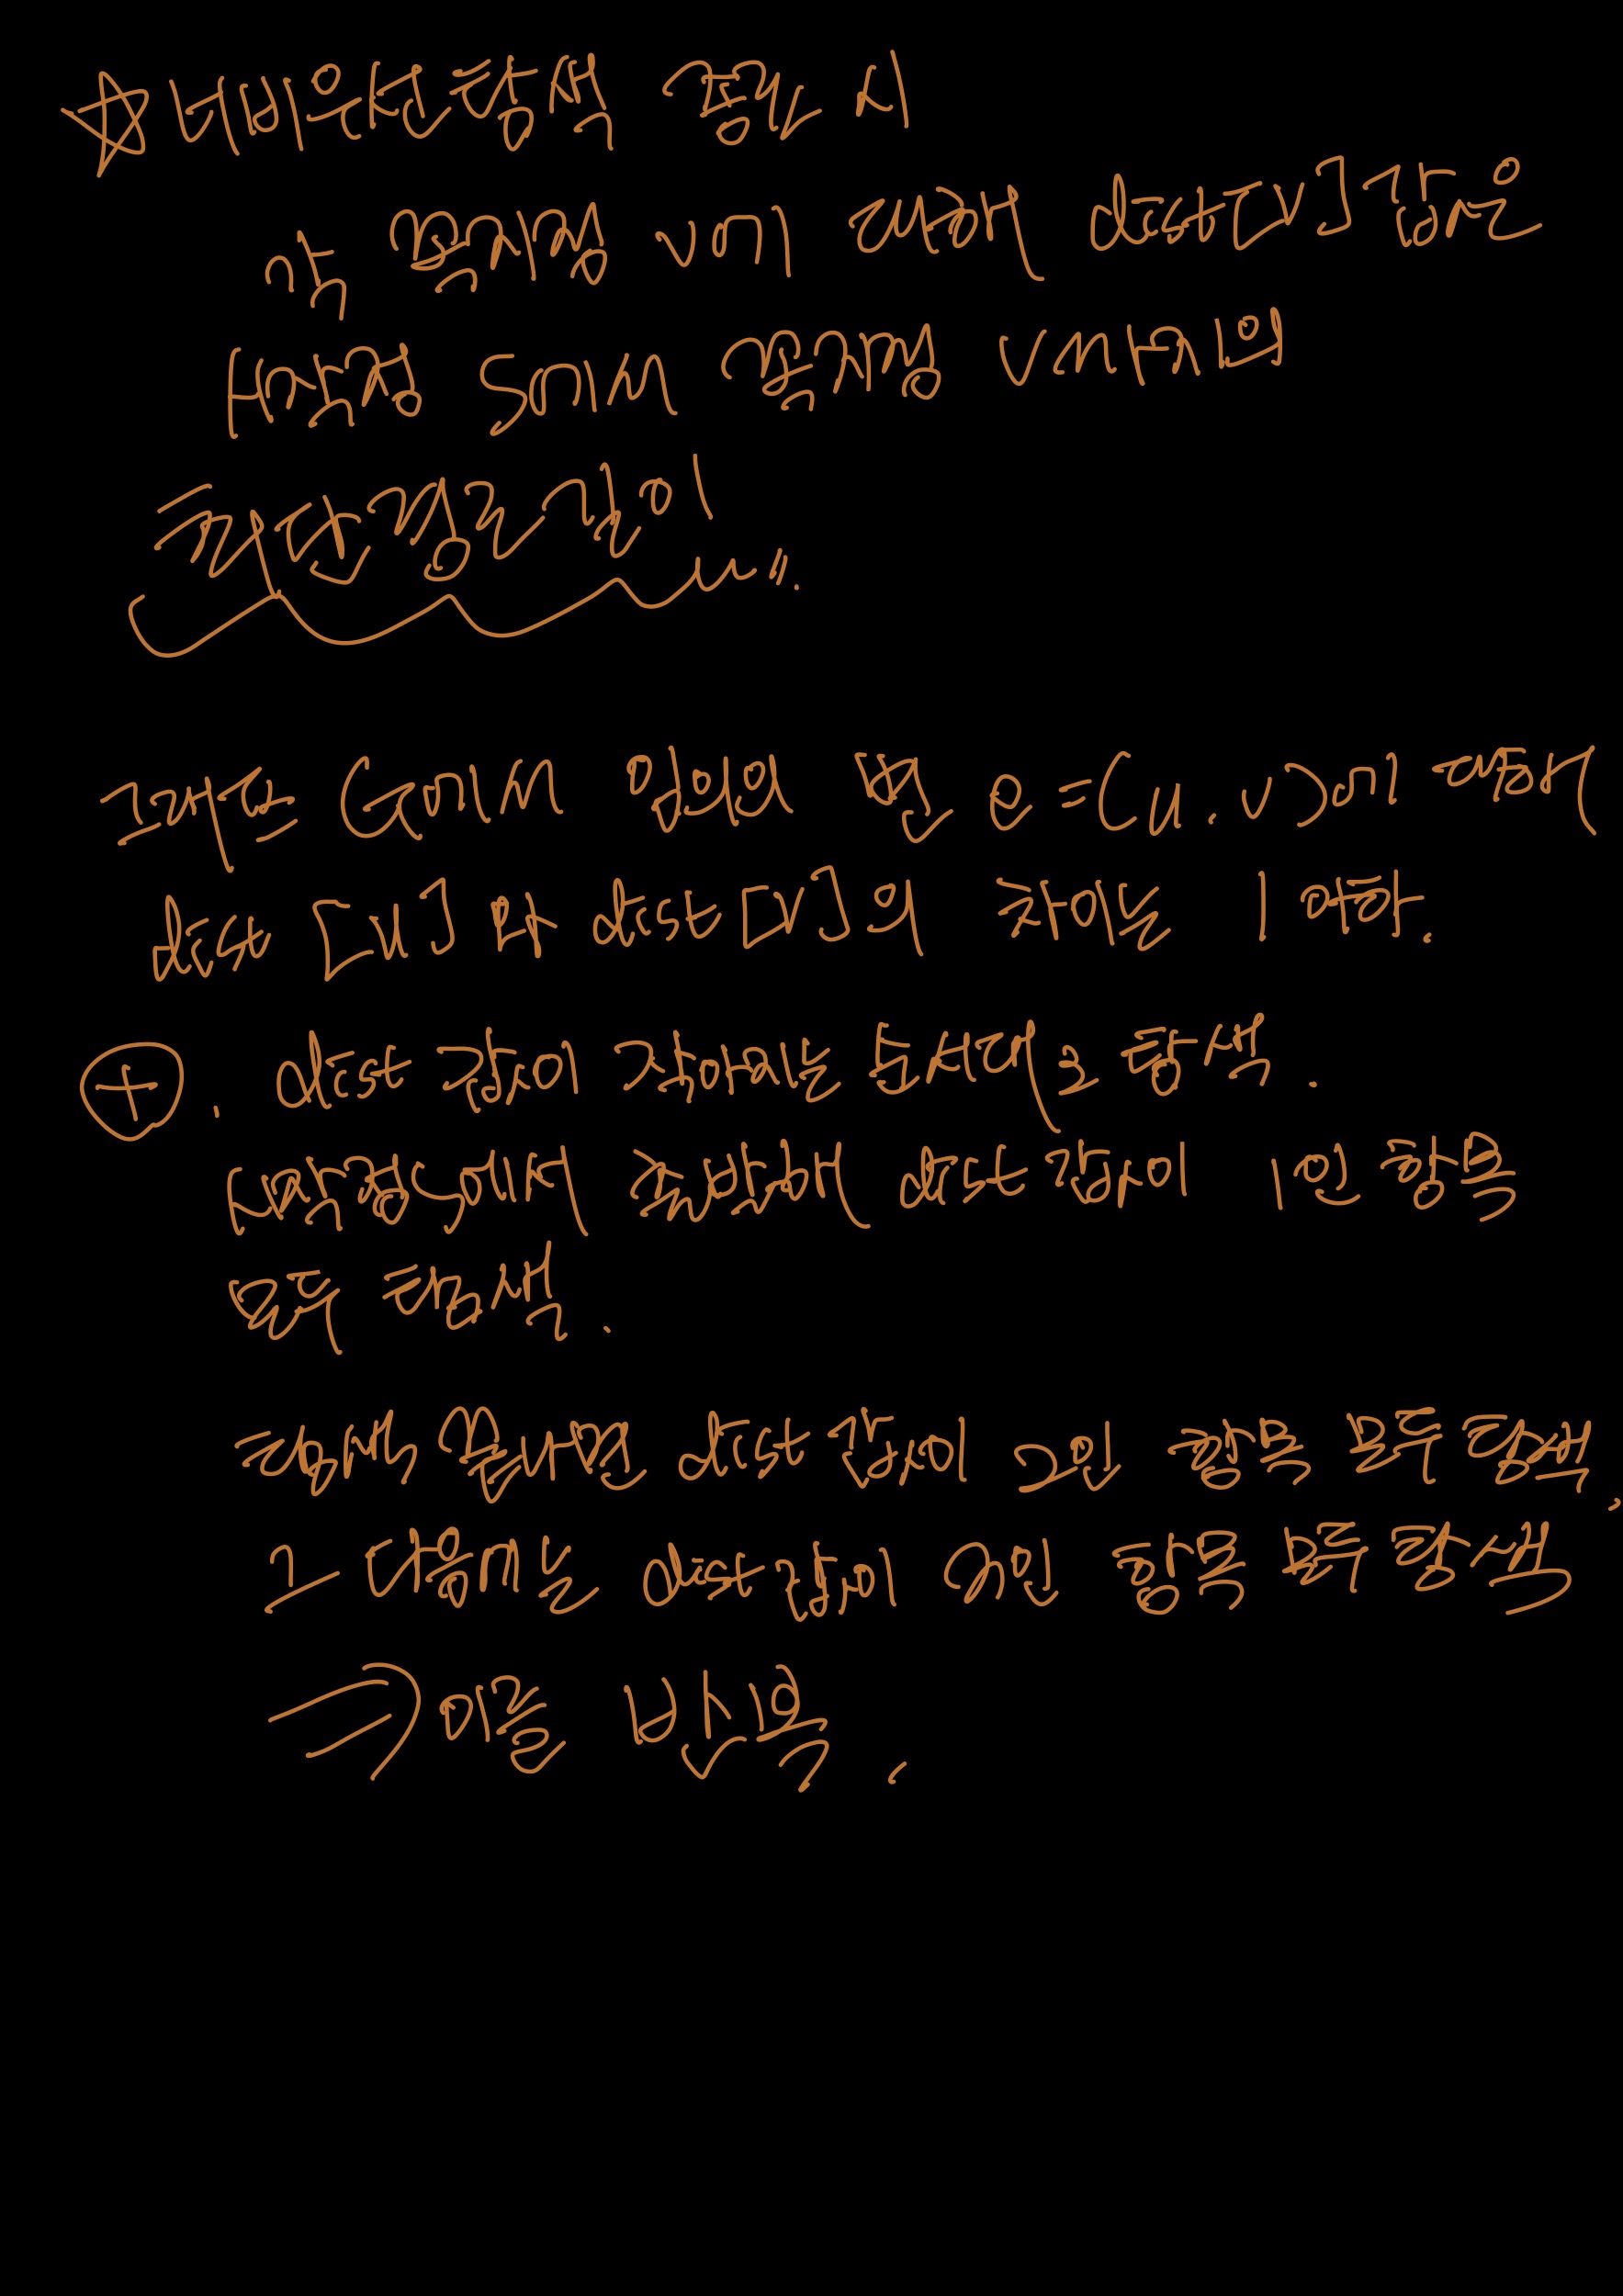 ☆ 너비우선탐색 종료 시
각 꼭지점 v에 대해 dist[v]값은
시작점 S에서 꼭지점 v까지의
최단경로길이
그래프 G에서 임의의 변 e=(u, v)에 대해서
dist [u]와 dist[v]의 차이는 1 이하.
⊕. dist 값이 작아지는 순서대로 탐색.
시작점S에서 출발해 dist값이 1인 항목
모두 탐색.
탐색 끝나면 dist 값이 2인 항목 모두 탐색,
그 다음에는 dist값이 3인 항목 모두 탐색
⇒ 이를 반복.